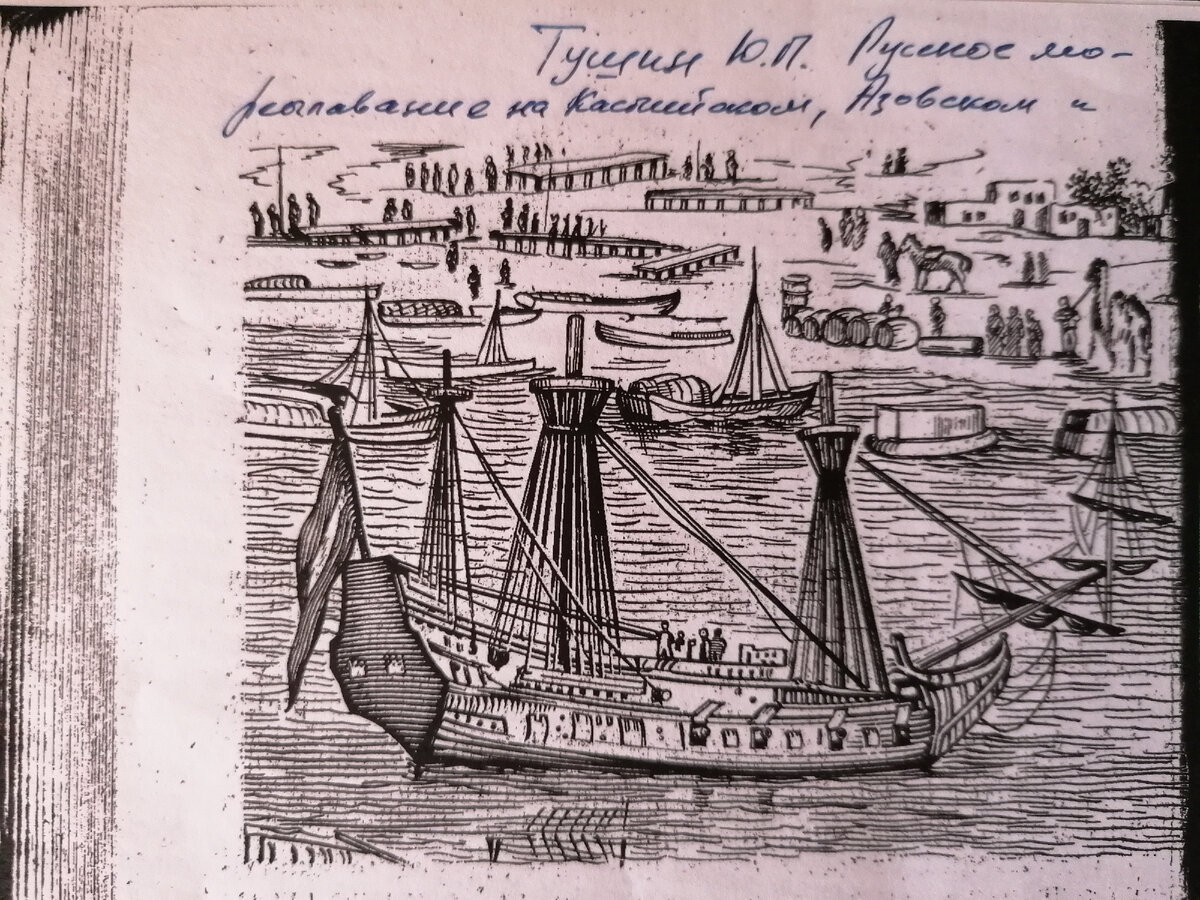 Тушин Ю.П. Русское мо-
реплавание на Каспийском, Азовском и